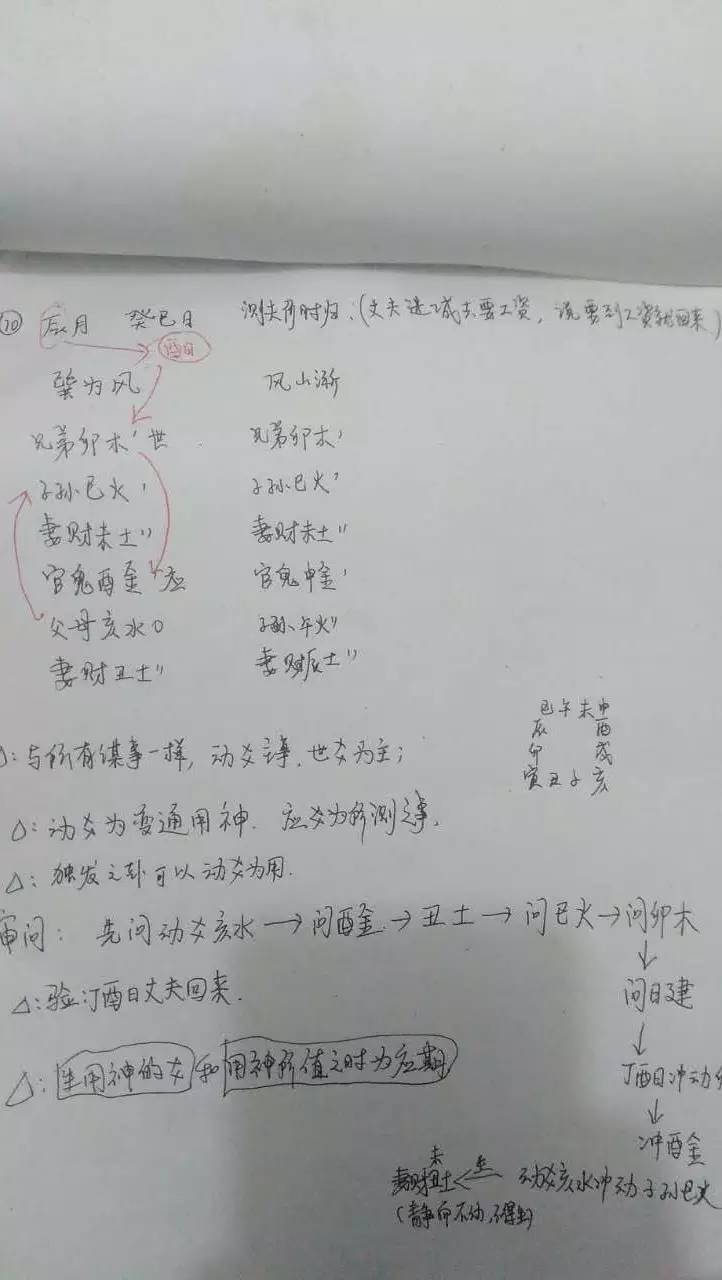 ⑳ 辰月 癸巳日 测夫何时归:(丈夫进城去要工资,说要到工资就回来)
酉日
巽为风 风山渐
兄弟卯木' 世 兄弟卯木'
子孙巳火' 子孙巳火'
妻财未土" 妻财未土"
官鬼酉金' 应 官鬼申金'
父母亥水O 子孙午火"
妻财丑土" 妻财辰土"
巳午未申
辰 酉
卯 戌
寅丑子亥
△:与所有谋事一样,动爻主事,世爻为主;
△:动爻为变通用神.应爻为所测之事.
△:独发之卦可以动爻为用.
审问: 先问动爻亥水→问酉金→丑土→问巳火→问卯木
↓
问日建
△:验:丁酉日丈夫回来.
↓
丁酉日冲动
△:生用神的爻和用神所值之时为应期
↓
冲酉金
妻财丑土 未 ←生 动爻亥水冲动子孙巳火